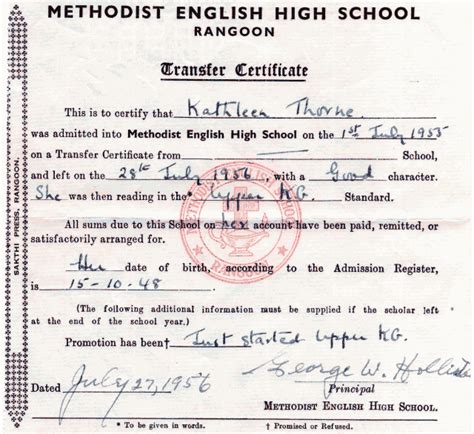 METHODIST ENGLISH HIGH SCHOOL
RANGOON
Transfer Certificate
This is to certify that Kathleen Thorne
was admitted into Methodist English High School on the 1st July 1955
on a Transfer Certificate from — School,
and left on the 28th July 1956, with a Good character.
She was then reading in the Upper KG. Standard.
All sums due to this School on her account have been paid, remitted, or
satisfactorily arranged for.
Her date of birth, according to the Admission Register,
is 15-10-48
(The following additional information must be supplied if the scholar left
at the end of the school year.)
Promotion has been† Just started Upper KG.
George W. Hollister
Dated July 27, 1956
Principal
METHODIST ENGLISH HIGH SCHOOL.
* To be given in words. † Promised or Refused.
SAKTHI PRESS, RANGOON.
METHODIST ENGLISH HIGH SCHOOL
RANGOON